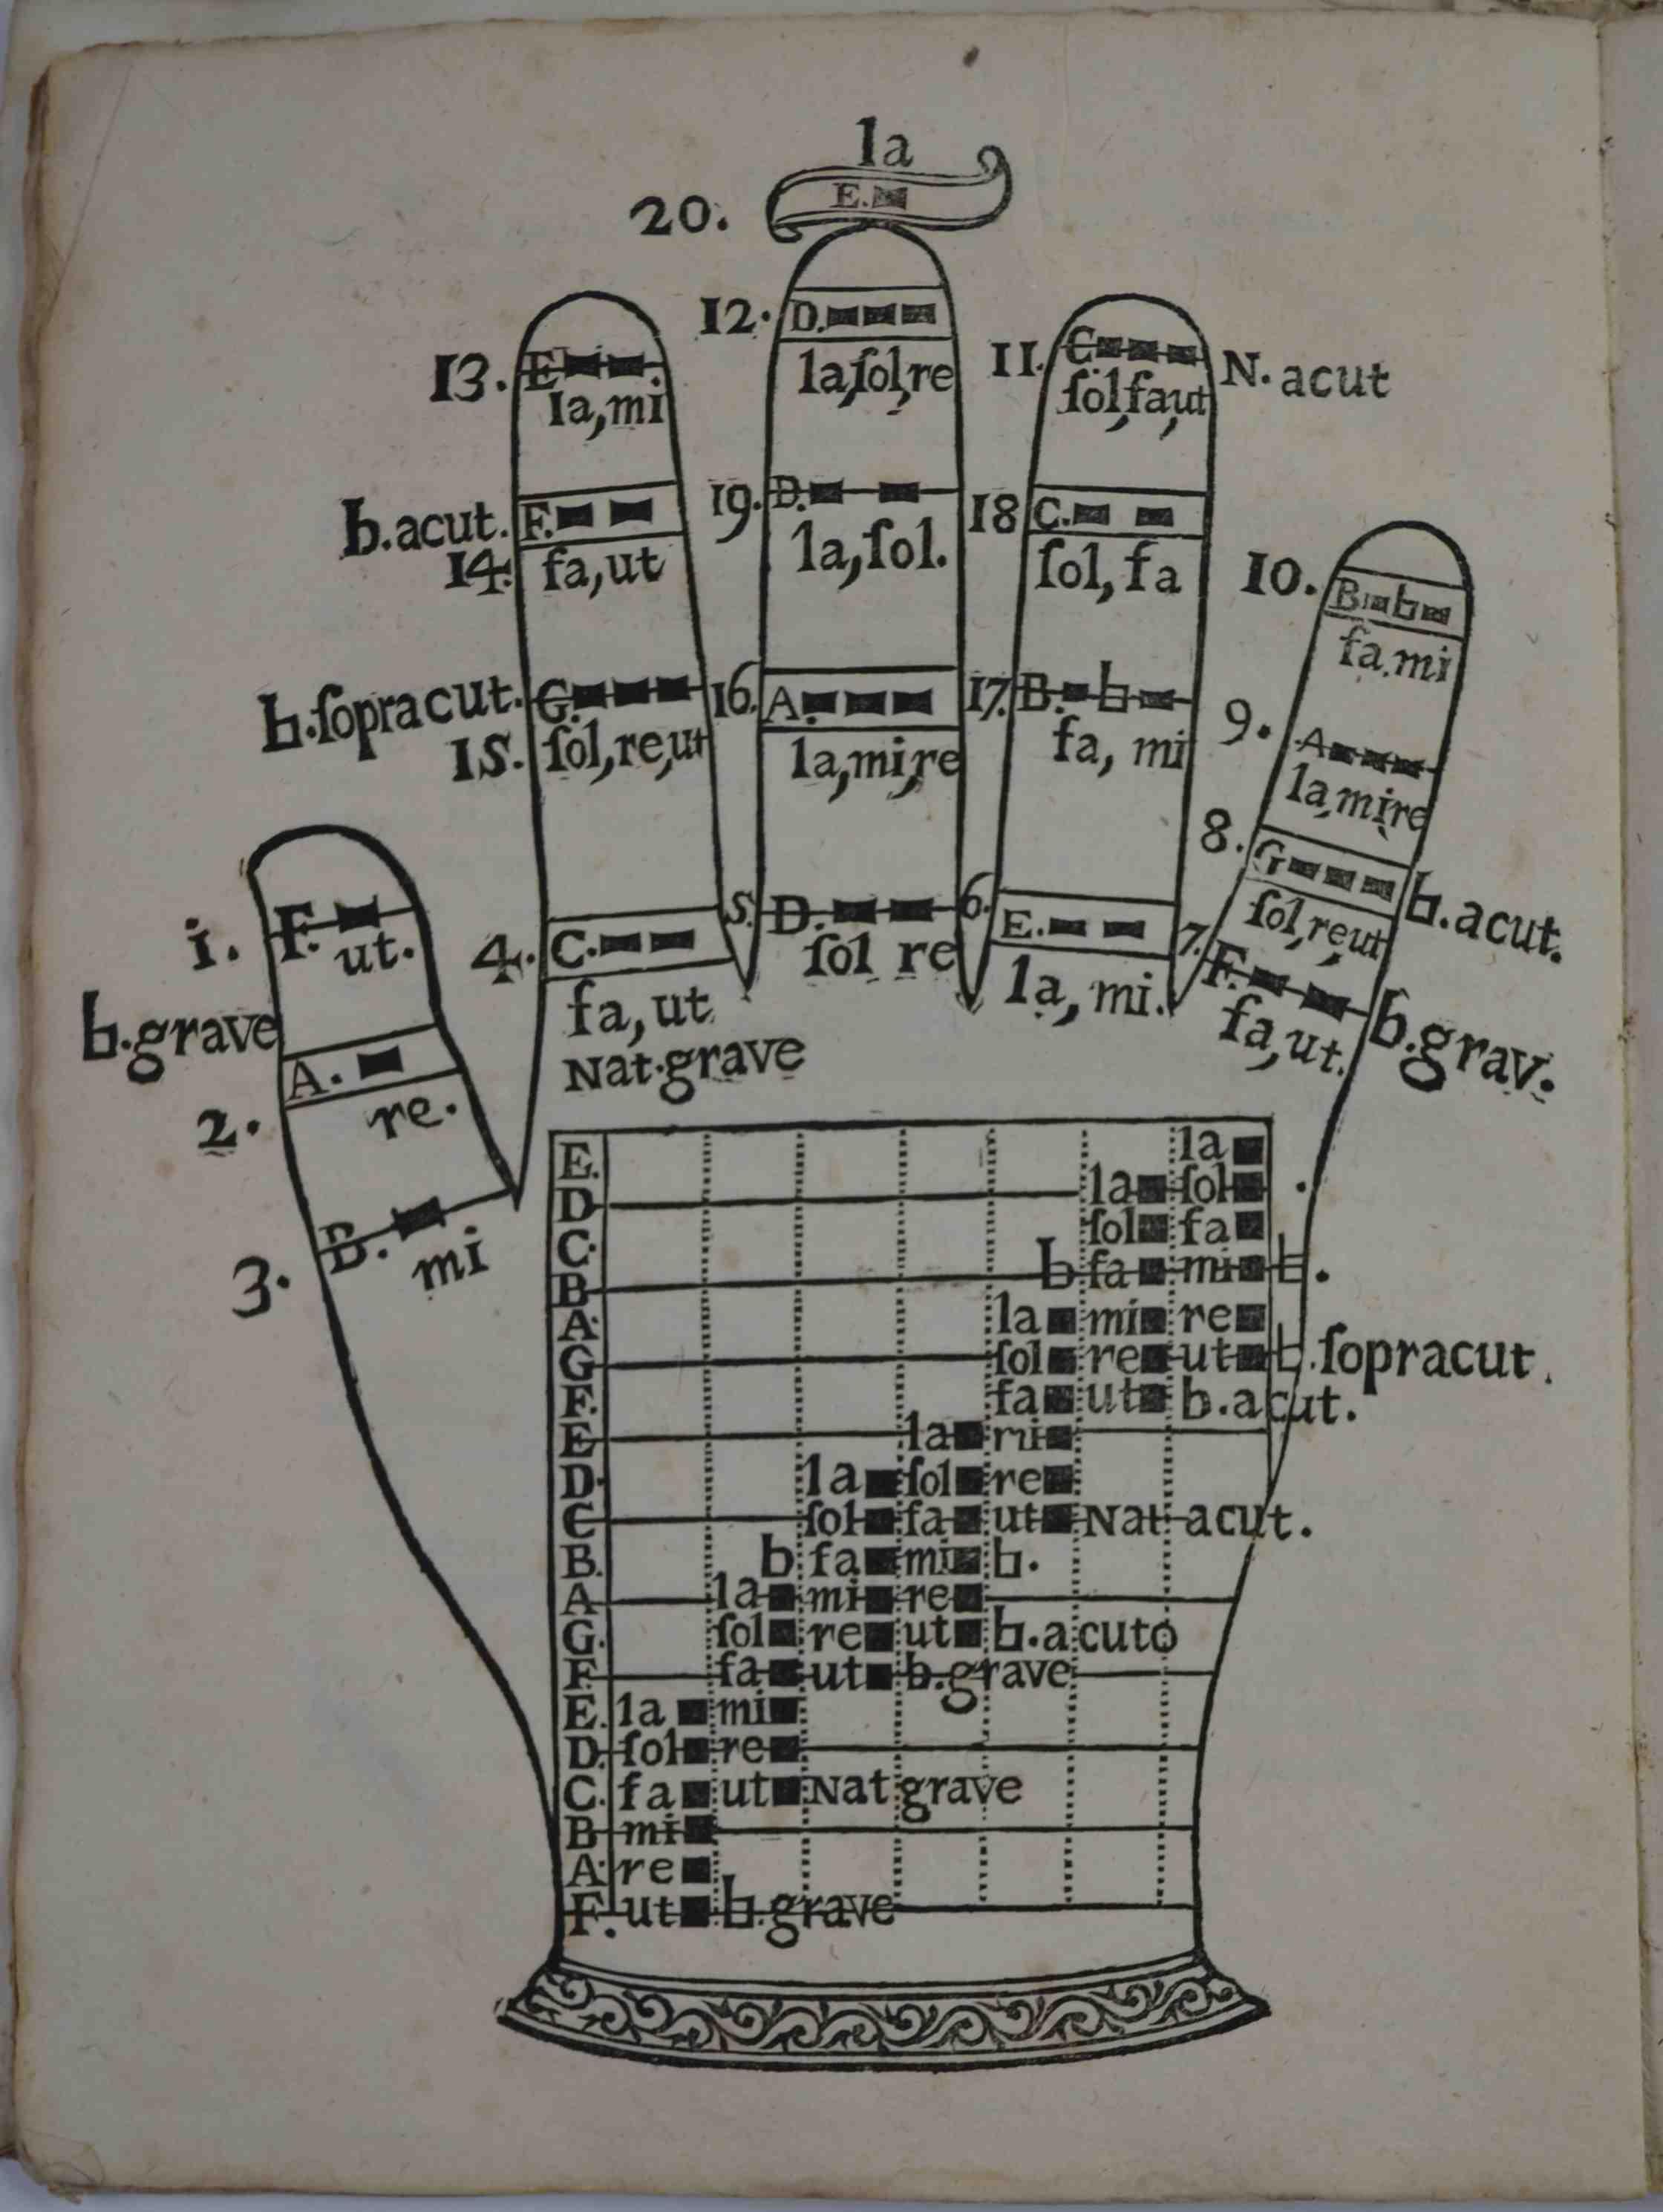 la
20. E.
12. D.
la,ſol,re
13. E
la,mi
11. C. N. acut
ſol,fa,ut
b.acut. F.
14. fa,ut
19. D.
la,ſol.
18 C.
ſol, fa
10. B b
fa.mi
♮.ſopracut. G.
15. ſol,re,ut
16. A.
la,mi,re
17. B. ♮
fa, mi
9. A
la,mi,re
8. G ♮.acut.
ſol,re,ut
1. F.
ut.
♮.grave
4. C.
fa,ut
Nat.grave
5. D.
ſol re
6. E.
la, mi.
7. F. b.grav.
fa,ut.
2. A.
re.
3. B.
mi
E. la
D la ſol
C. ſol fa
B b fa mi ♮.
A la mi re
G ſol re ut ♮.ſopracut.
F. fa ut b.acut.
E la mi
D. la ſol re
C ſol fa ut Nat acut.
B. b fa mi ♮.
A la mi re
G. ſol re ut ♮.acuto
F fa ut b.grave
E. la mi
D. ſol re
C. fa ut Nat grave
B mi
A. re
F. ut ♮.grave